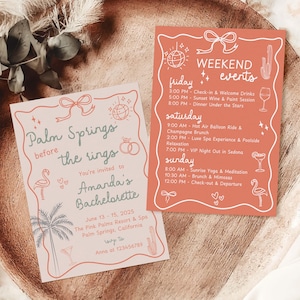 Palm Springs
before
the rings
You're invited to
Amanda's
Bachelorette
June 13 - 15, 2025
The Pink Palms Resort & Spa
Palm Springs, California
WEEKEND
events
friday
3:00 PM - Check-in & Welcome Drinks
5:00 PM - Sunset Wine & Paint Session
8:00 PM - Dinner Under the Stars
saturday
9:00 AM - Hot Air Balloon Ride &
Champagne Brunch
2:00 PM - Luxe Spa Experience & Poolside
Relaxation
7:00 PM - VIP Night Out in Sedona
sunday
8:00 AM - Sunrise Yoga & Meditation
10:30 AM - Brunch & Mimosas
12:00 PM - Check-out & Departure